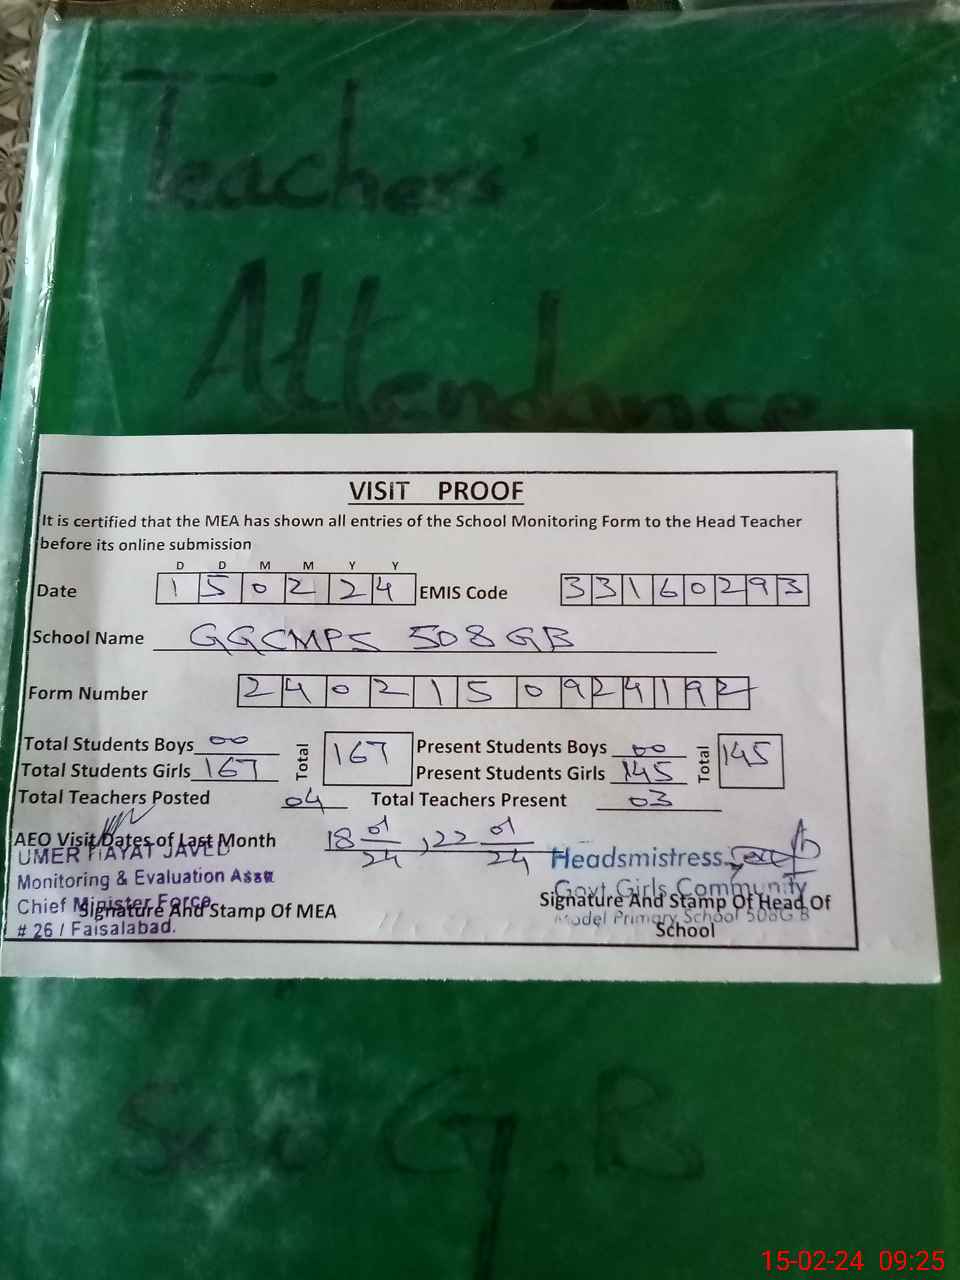 Teachers'
Attendance
VISIT PROOF
It is certified that the MEA has shown all entries of the School Monitoring Form to the Head Teacher
before its online submission
D D M M Y Y
Date 1 5 0 2 2 4 EMIS Code 3 3 1 6 0 2 9 3
School Name GGCMPS 508 GB
Form Number 2 4 0 2 1 5 0 9 2 4 1 9 2
Total Students Boys 00 Total 167 Present Students Boys 00 Total 145
Total Students Girls 167 Present Students Girls 145
Total Teachers Posted 04 Total Teachers Present 03
AEO Visit Dates of Last Month 18 01/24, 22 01/24
UMER HAYAT JAVED
Monitoring & Evaluation Asstt
Chief Minister Force
# 26 / Faisalabad.
Signature And Stamp Of MEA
Headsmistress
Govt. Girls Community
Model Primary School 508G B
Signature And Stamp Of Head Of
School
G.B
15-02-24 09:25